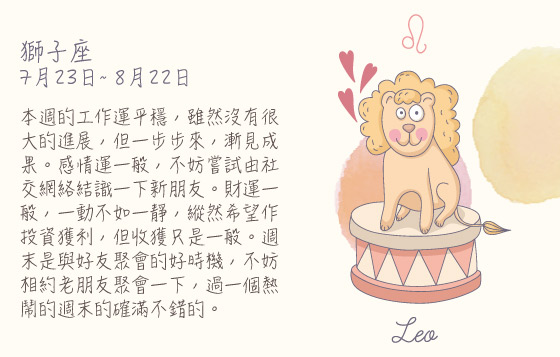 獅子座
7月23日~ 8月22日
本週的工作運平穩，雖然沒有很
大的進展，但一步步來，漸見成
果。感情運一般，不妨嘗試由社
交網絡結識一下新朋友。財運一
般，一動不如一靜，縱然希望作
投資獲利，但收獲只是一般。週
末是與好友聚會的好時機，不妨
相約老朋友聚會一下，過一個熱
鬧的週末的確滿不錯的。
Leo